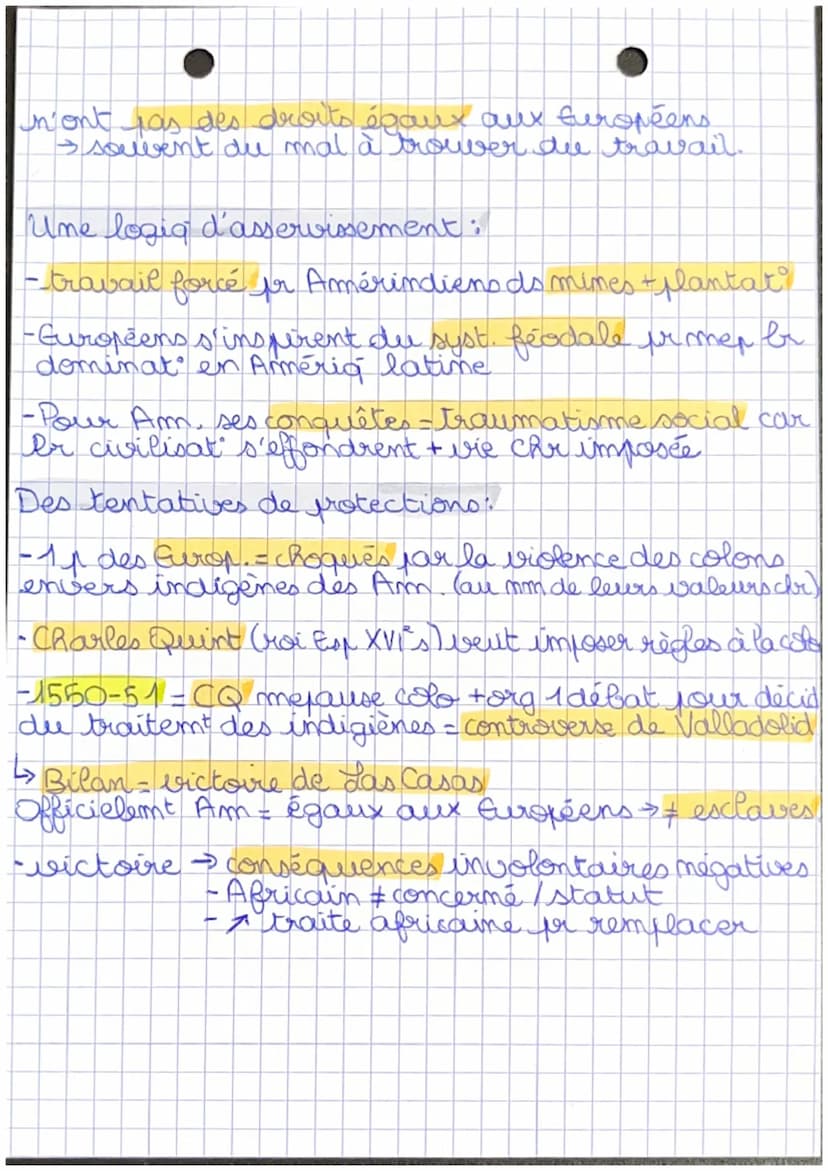 n'ont pas des droits égaux aux Européens
→ souvent du mal à trouver du travail.
Une logiq d'asservissement :
- travail forcé pr Amérindiens ds mines + plantat°
- Européens s'inspirent du syst. féodale pr mep lr
dominat° en Amériq latine
- Pour Am, ses conquêtes = traumatisme social car
lr civilisat° s'effondrent + vie chr imposée
Des tentatives de protections :
- 1 p des Europ. = choqués par la violence des colons
envers indigènes des Am. (au nm de leurs valeurs chr)
- Charles Quint (roi Esp XVIᵉs) veut imposer règles à la colo
- 1550-51 = CQ mepause colo + org 1 débat pour décid
du traitemt des indigiènes = controverse de Valladolid
↳ Bilan = victoire de Las Casas
Officielemt Am = égaux aux Européens → ≠ esclaves
- victoire → conséquences involontaires négatives
- Africain ≠ concerné / statut
- ↗ traite africaine pr remplacer